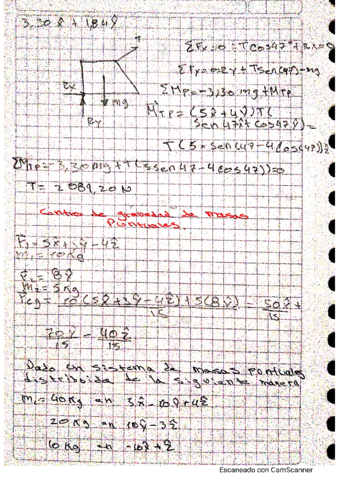 3,30 x̂ + 1.84 ŷ
ΣFx=0 = Tcos47° + Rx=0
ΣFy=0=Ry+Tsen(47)-mg
ΣMp=-3,30mg+MTp
Rx
mg
Ry
MTP=(5x̂+4ŷ)T(
Sen47x̂+Cos47ŷ)=
T(5xsen(47-4Cos(47))ẑ
ΣMTp=-3,30mg+T(5sen47-4cos47))=0
T= 2089,20N
Centro de gravedad de masas
Puntuales
r̄1=5x̂+3ŷ-4ẑ
m1=10Kg
r̄2=8ŷ
m2=5Kg
rcg=10(5x̂+3ŷ-4ẑ)+5(8ŷ) = 50x̂+
15 15
70ŷ - 40ẑ
15 15
Dado un sistema de masas puntuales
distribuida de la siguiente manera
m1=40Kg en 3x̂-10ŷ+4ẑ
20Kg en 10ŷ-3ẑ
10Kg en
Escaneado con CamScanner